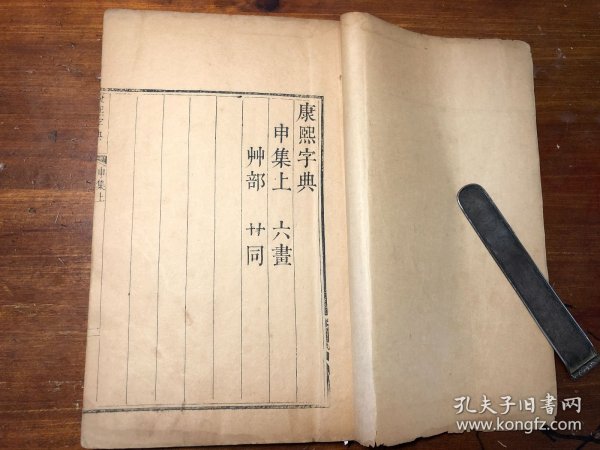 康熙字典
申集上 六畫
艸部 艹同
申集上
孔夫子旧书网
www.kongfz.com